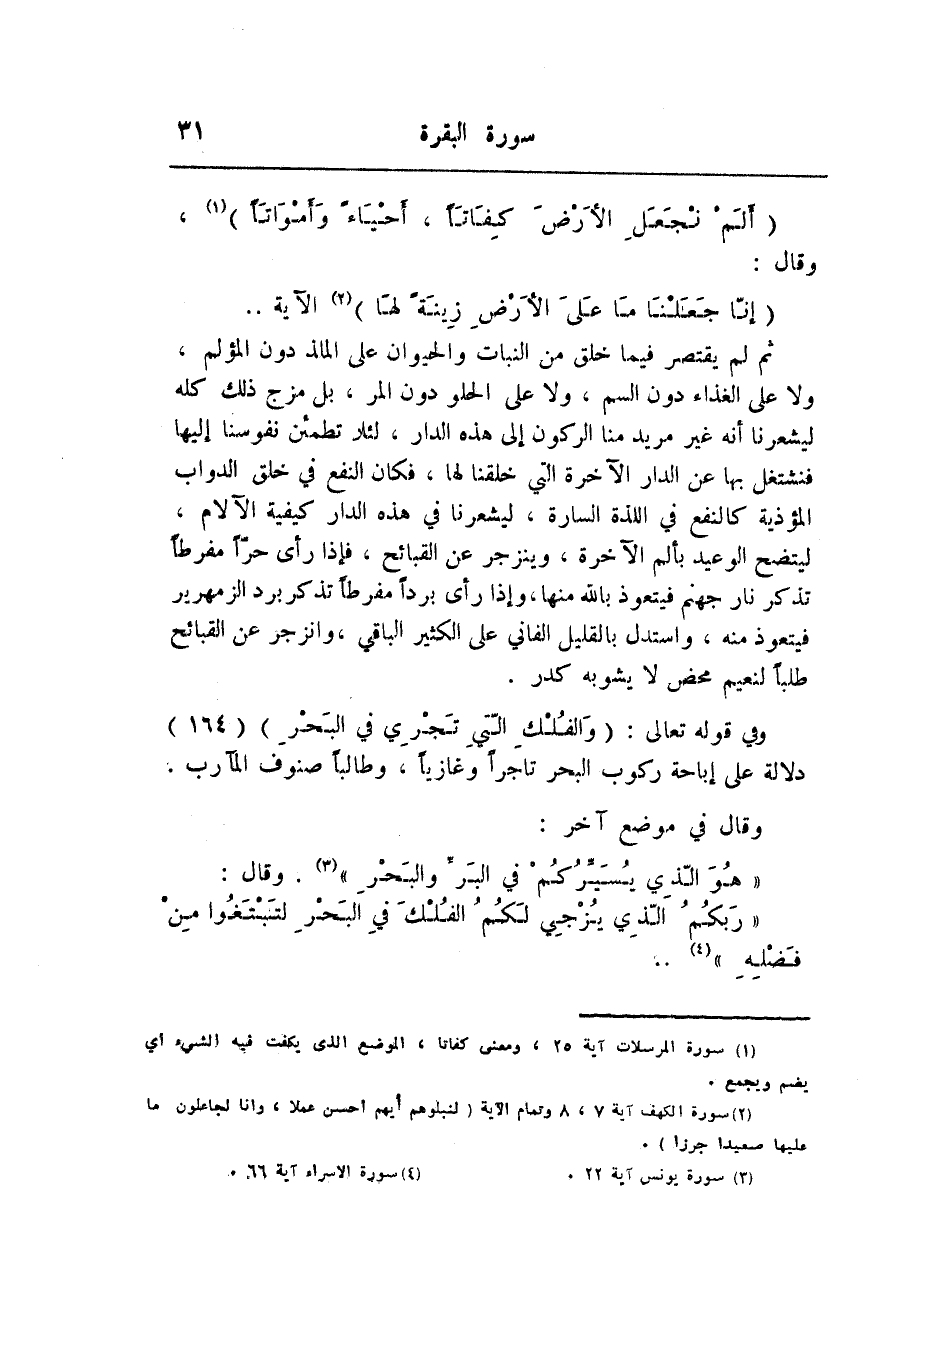 سورة البقرة ٣١
( أَلَمْ نَجْعَلِ الأَرْضَ كِفَاتَاً ، أَحْيَاءً وَأَمْوَاتَاً )(١) ،
وقال :
( إنّا جَعَلْنَا مَا عَلَى الأَرْضِ زِينَةً لهَا )(٢) الآية ..
ثم لم يقتصر فيما خلق من النبات والحيوان على الملاذ دون المؤلم ،
ولا على الغذاء دون السم ، ولا على الحلو دون المر ، بل مزج ذلك كله
ليشعرنا أنه غير مريد منا الركون إلى هذه الدار ، لئلا تطمئن نفوسنا إليها
فنشتغل بها عن الدار الآخرة التي خلقنا لها ، فكان النفع في خلق الدواب
المؤذية كالنفع في اللذة السارة ، ليشعرنا في هذه الدار كيفية الآلام ،
ليتضح الوعيد بألم الآخرة ، وينزجر عن القبائح ، فإذا رأى حرّاً مفرطاً
تذكر نار جهنم فيتعوذ بالله منها، وإذا رأى برداً مفرطاً تذكر برد الزمهرير
فيتعوذ منه ، واستدل بالقليل الفاني على الكثير الباقي ، وانزجر عن القبائح
طلباً لنعيم محض لا يشوبه كدر .
وفي قوله تعالى : ( وَالفُلْكِ الّتِي تَجْرِي في البَحْرِ ) ( ١٦٤ )
دلالة على إباحة ركوب البحر تاجراً وغازياً ، وطالباً صنوف المآرب .
وقال في موضع آخر :
« هُوَ الّذِي يُسَيِّرُكُمْ في البَرِّ والبَحْرِ »(٣) . وقال :
« رَبكُمُ الّذِي يُزْجِي لَكُمُ الفُلْكَ فِي البَحْرِ لتَبْتَغُوا مِنْ
فَضْلِهِ »(٤) ..
(١) سورة المرسلات آية ٢٥ ، ومعنى كفاتا ، الموضع الذى يكفت فيه الشيء اي
يضم ويجمع ٠
(٢) سورة الكهف آية ٧ ، ٨ وتمام الآية ( لنبلوهم أيهم احسن عملا ، وانا لجاعلون ما
عليها صعيدا جرزا ) ٠
(٣) سورة يونس آية ٢٢ ٠ (٤) سورة الاسراء آية ٦٦ ٠